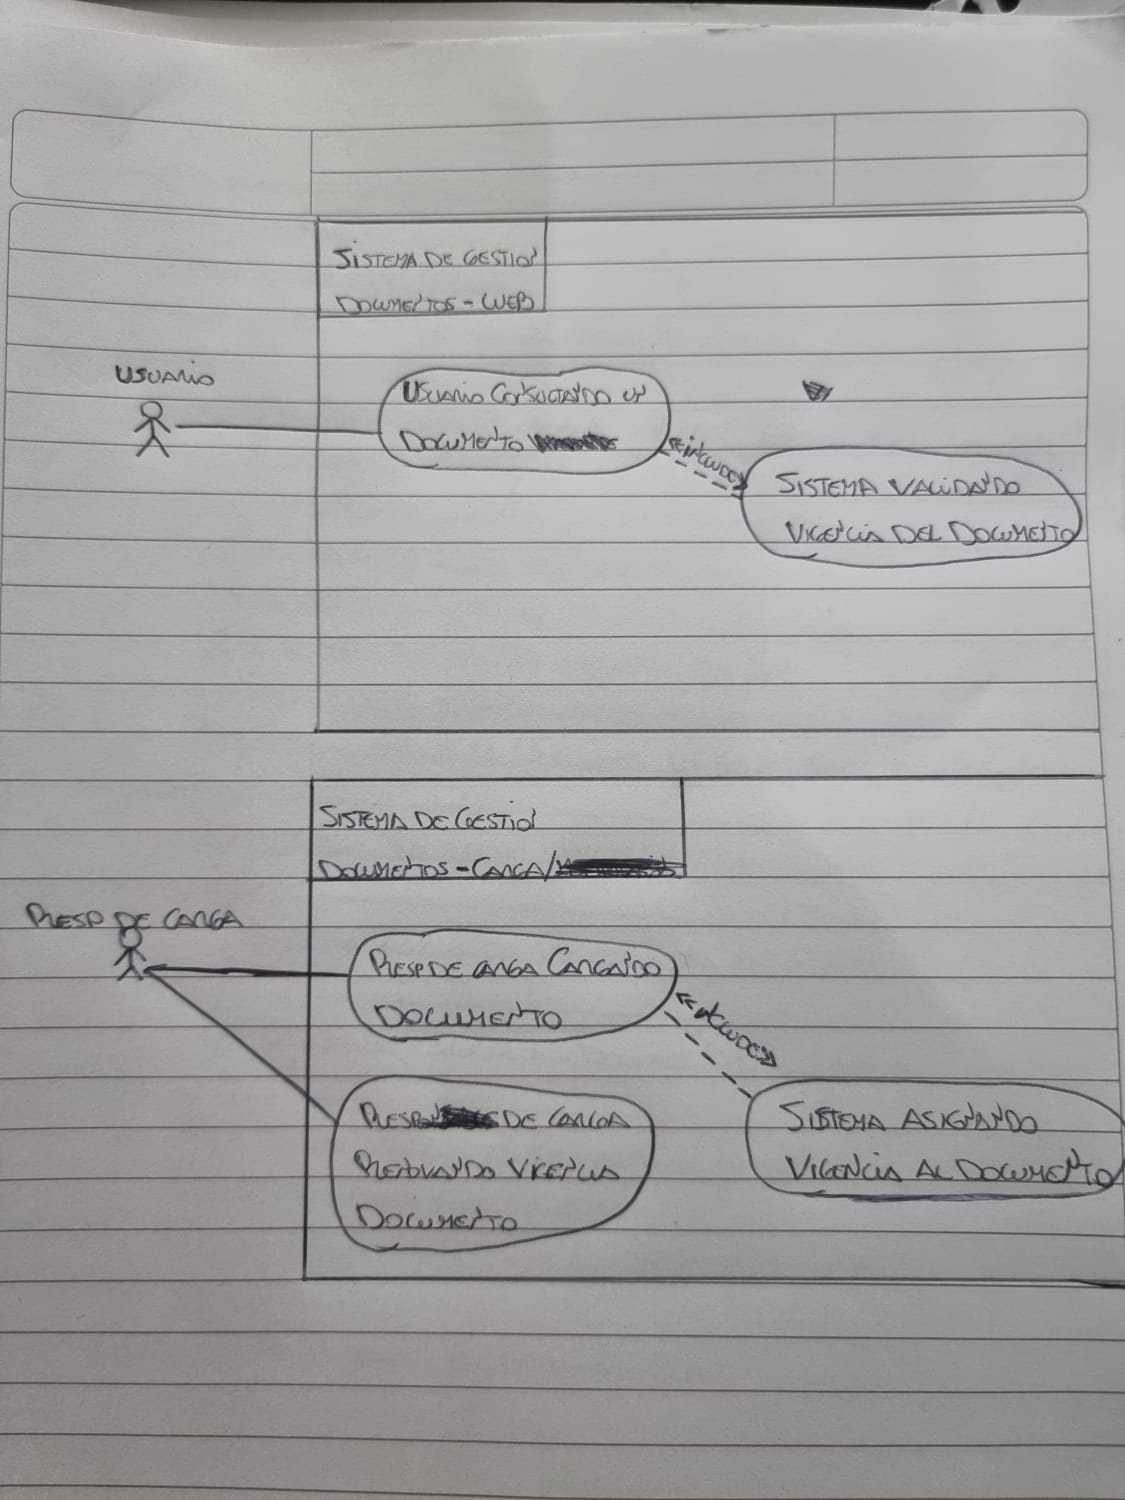 SISTEMA DE GESTION
DOCUMENTOS - WEB
USUARIO
USUARIO CONSULTANDO UN
DOCUMENTO
«INCLUDE»
SISTEMA VALIDANDO
VIGENCIA DEL DOCUMENTO
SISTEMA DE GESTION
DOCUMENTOS - CARGA/
RESP DE CARGA
RESP DE CARGA CARGANDO
DOCUMENTO
«INCLUDE»
RESPON DE CARGA
RENOVANDO VIGENCIA
DOCUMENTO
SISTEMA ASIGNANDO
VIGENCIA AL DOCUMENTO